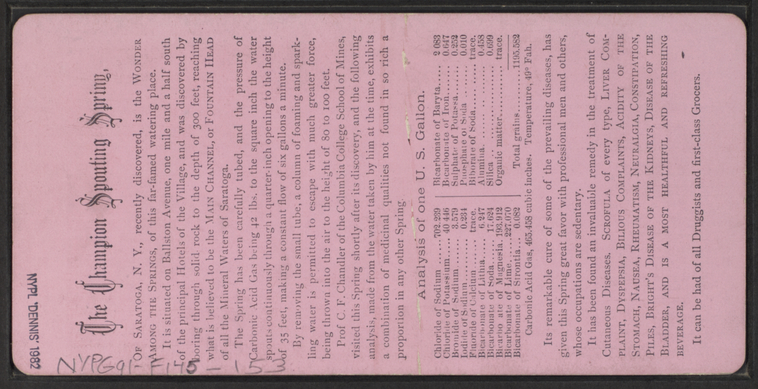 The Champion Spouting Spring,
OF SARATOGA, N. Y., recently discovered, is the WONDER
AMONG THE SPRINGS, of this far-famed watering place.
It is situated on Ballston Avenue, one mile and a half south
of the principal Hotels of the Village, and was discovered by
boring through solid rock to the depth of 300 feet, reaching
what is believed to be the MAIN CHANNEL, or FOUNTAIN HEAD
of all the Mineral Waters of Saratoga.
The Spring has been carefully tubed, and the pressure of
Carbonic Acid Gas being 42 lbs. to the square inch the water
spouts continuously through a quarter-inch opening to the height
of 35 feet, making a constant flow of six gallons a minute.
By removing the small tube, a column of foaming and spark-
ling water is permitted to escape with much greater force,
being thrown into the air to the height of 80 to 100 feet.
Prof C. F. Chandler of the Columbia College School of Mines,
visited this Spring shortly after its discovery, and the following
analysis, made from the water taken by him at the time, exhibits
a combination of medicinal qualities not found in so rich a
proportion in any other Spring
Analysis of one U. S. Gallon.
Chloride of Sodium 702.239
Chloride of Potassium 40.446
Bromide of Sodium 3.579
Iodide of Sodium 0.234
Fluoride of Calcium trace.
Bicarbonate of Lithia 6.247
Bicarbonate of Soda 17.624
Bicarbonate of Magnesia 193.912
Bicarbonate of Lime 227.070
Bicarbonate of Strontia 0.082
Bicarbonate of Baryta 2.083
Bicarbonate of Iron 0.647
Sulphate of Potassa 0.252
Phosphate of Soda 0.010
Biborate of Soda trace.
Alumina 0.458
Silica 0.699
Organic matter trace.
Total grains 1195.582
Carbonic Acid Gas, 465.458 cubic inches. Temperature, 49° Fah.
Its remarkable cure of some of the prevailing diseases, has
given this Spring great favor with professional men and others,
whose occupations are sedentary.
It has been found an invaluable remedy in the treatment of
Cutaneous Diseases. SCROFULA of every type, LIVER COM-
PLAINT, DYSPEPSIA, BILIOUS COMPLAINTS, ACIDITY OF THE
STOMACH, NAUSEA, RHEUMATISM, NEURALGIA, CONSTIPATION,
PILES, BRIGHT'S DISEASE OF THE KIDNEYS, DISEASE OF THE
BLADDER, AND IS A MOST HEALTHFUL AND REFRESHING
BEVERAGE.
It can be had of all Druggists and first-class Grocers.
NYPL DENNIS 1982